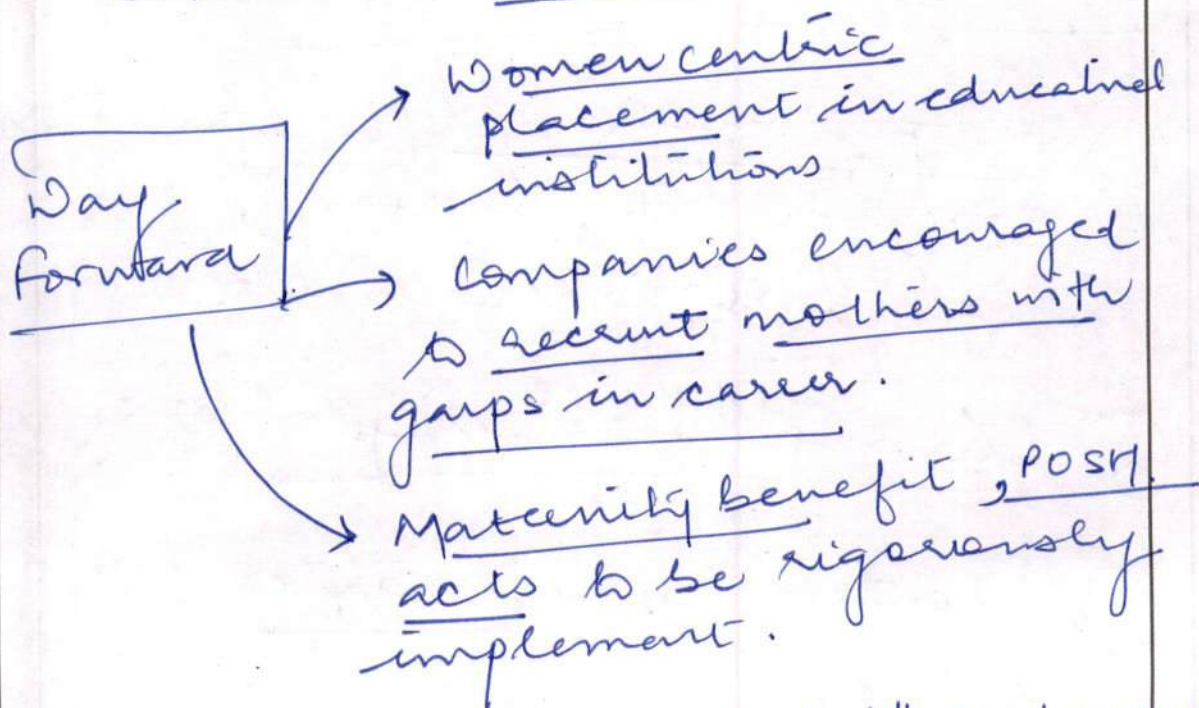 Way
Forward
Women centric
placement in educational
institutions
Companies encouraged
to recruit mothers with
gaps in career.
Maternity benefit, POSH
acts to be rigorously
implement.